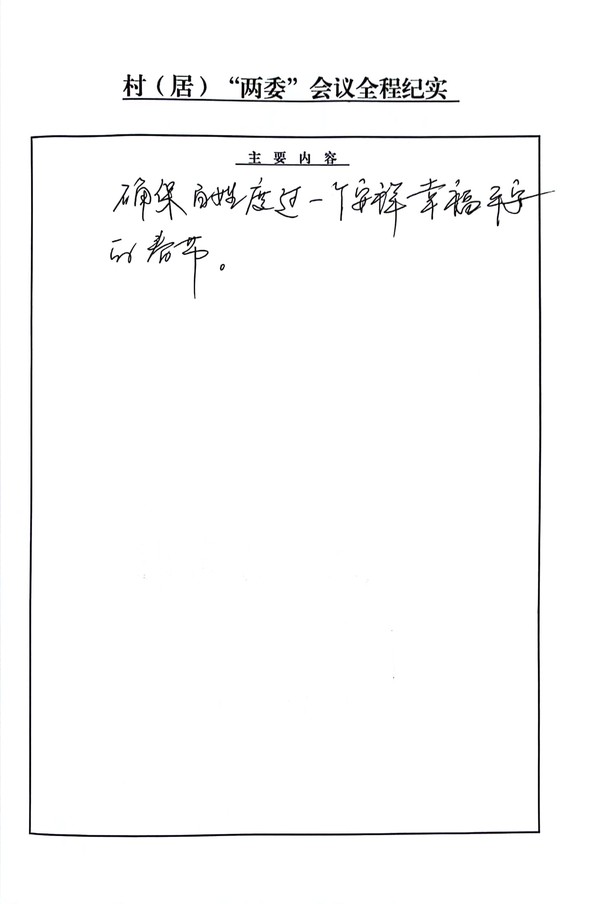 村（居）“两委”会议全程纪实
主要内容
确保百姓度过一个安祥幸福平安
的春节。